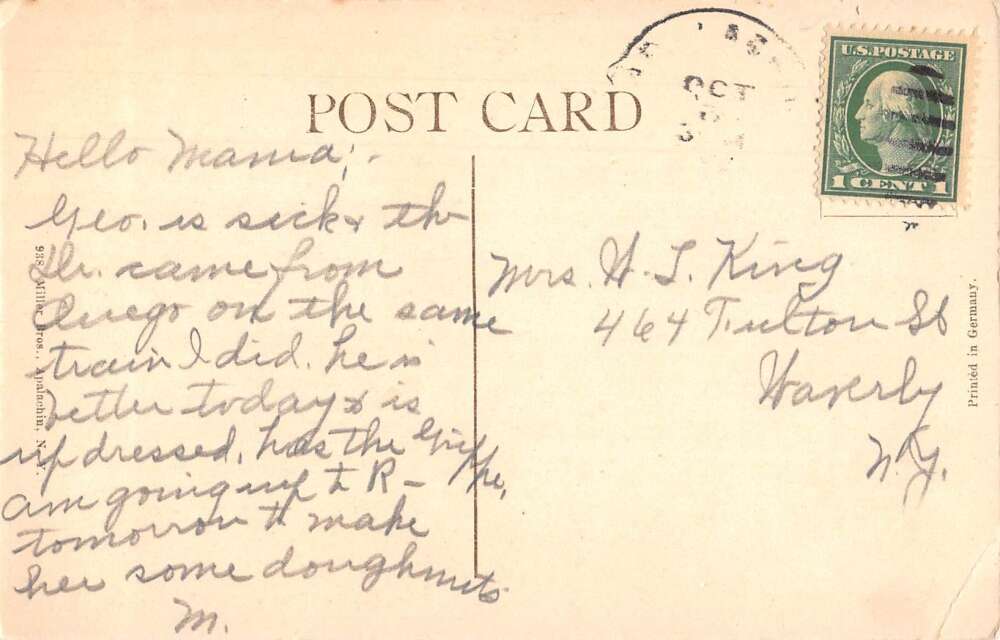 POST CARD
OCT
U.S. POSTAGE
1 CENT 1
Hello Mama;-
Geo. is sick & th
Dr. came from
Owego on the same
train I did. he is
better today & is
up dressed, has the Grippe,
am going up to R-
tomorrow to make
her some doughnuts
M.
Mrs. H. L. King
464 Fulton St
Waverly
N.Y.
938 Miller Bros., Apalachin, N.Y.
Printed in Germany.